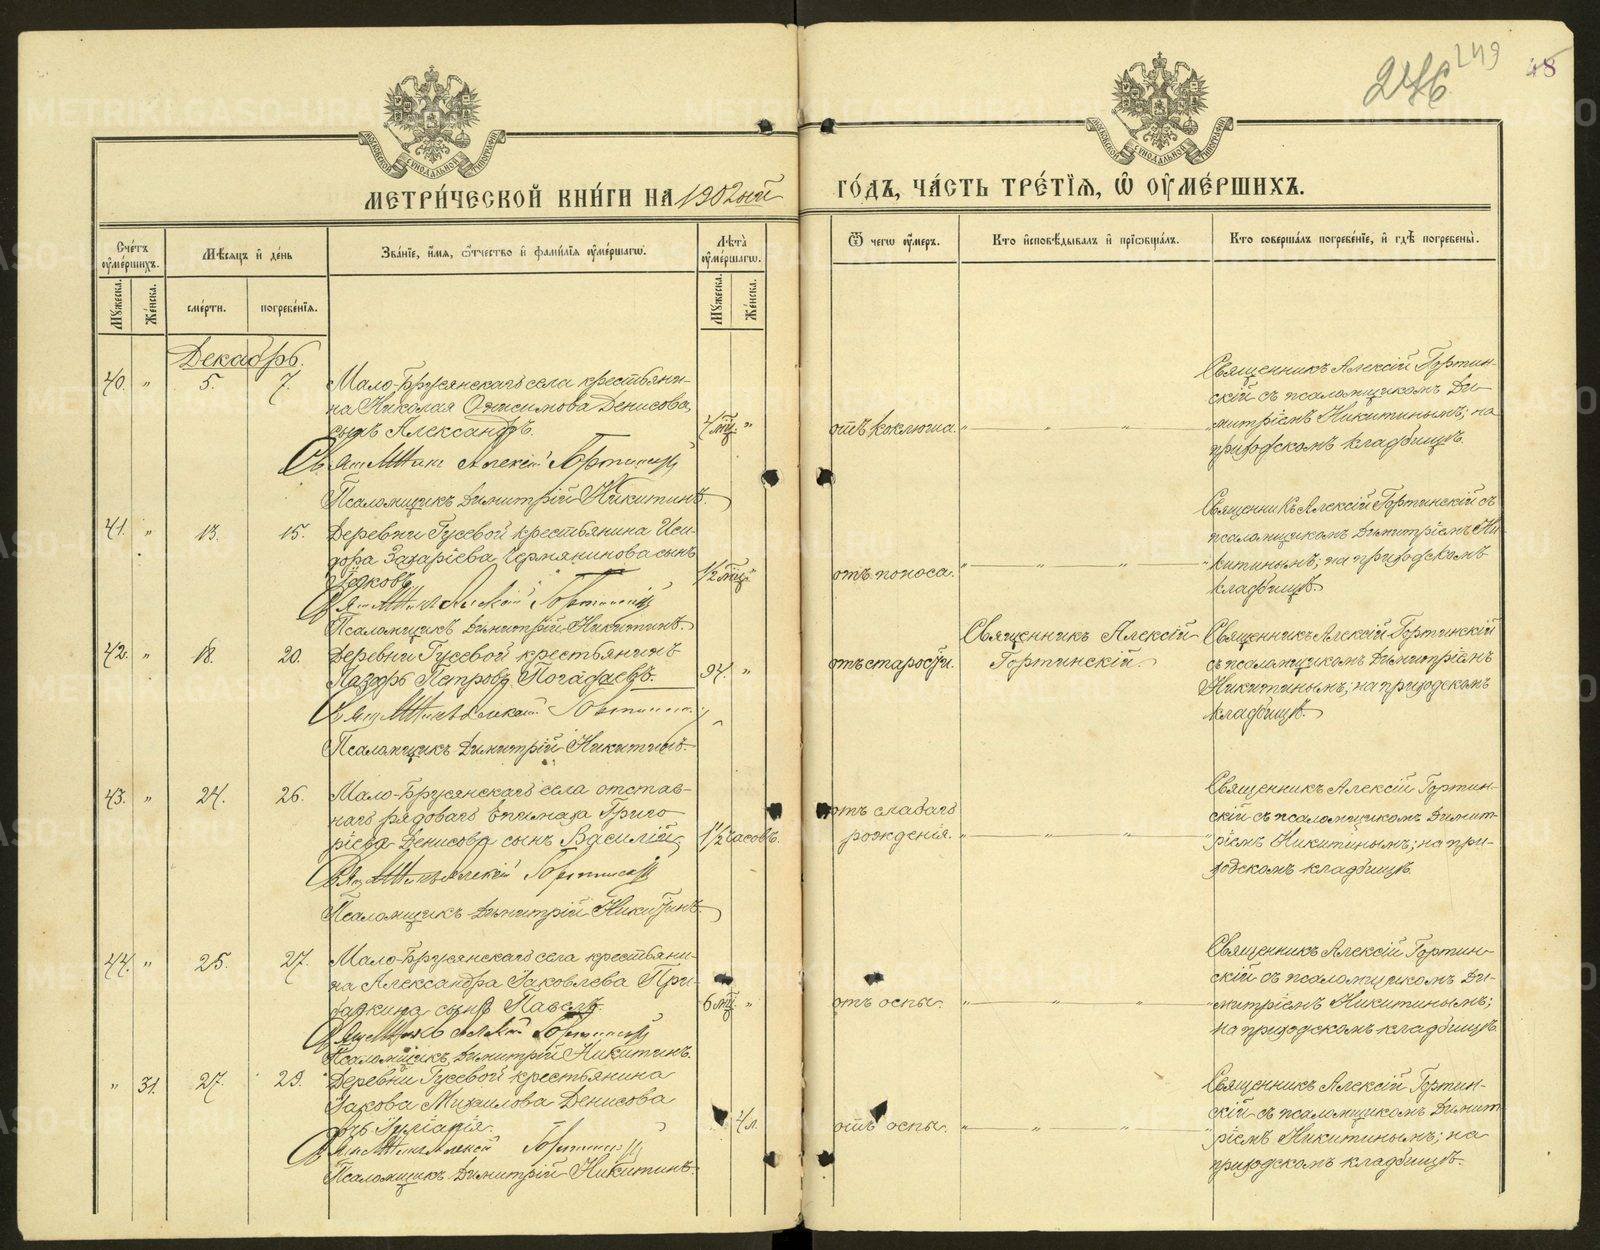 246
249
48
МЕТРИ́ЧЕСКОЙ КНИ́ГИ НА 1902 ный
ГО́ДЪ, ЧА́СТЬ ТРЕ́ТЇѦ, Ѽ ОУМЕ́РШИХЪ.
МОСКОВСКОЙ СѴНОДАЛЬНОЙ ТИПОГРАФІИ
МОСКОВСКОЙ СѴНОДАЛЬНОЙ ТИПОГРАФІИ
Сче́тъ оуме́ршихъ.
Мꙋжеска.
Же́нска.
Мѣ́сѧцъ и҆ де́нь
сме́рти.
погребе́нїѧ.
Зва́нїе, и҆́мѧ, ѻ҆́тчество и҆ фами́лїѧ оуме́ршагѡ.
Лѣ́та оуме́ршагѡ.
Мꙋжеска.
Же́нска.
Ѿ чегѡ̀ оу́меръ.
Кто̀ и҆сповѣ́дывалъ и҆ прїѡбща́лъ.
Кто̀ соверша́лъ погребе́нїе, и҆ гдѣ̀ погребены̀.
Декабрь.
40. „ 5. 7. Мало-Брусянскаго села крестьяни-
на Николая Онисимова Денисова
сынъ Александръ 4 мц. „ отъ коклюша. „ „ „
Священникъ Алексій Гортинскій
Псаломщикъ Димитрій Никитинъ.
Священникъ Алексій Гортин-
скій съ псаломщикомъ Ди-
митріемъ Никитинымъ; на
приходскомъ кладбищѣ.
41. „ 13. 15. Деревни Гусевой крестьянина Иси-
дора Захаріева Чермянинова сынъ
Іаковъ 1½ мц. „ отъ поноса. „ „ „
Священникъ Алексій Гортинскій
Псаломщикъ Димитрій Никитинъ.
Священникъ Алексій Гортинскій съ
псаломщикомъ Димитріемъ Ни-
китинымъ; на приходскомъ
кладбищѣ.
42. „ 18. 20. Деревни Гусевой крестьянинъ
Назаръ Петровъ 94. „ отъ старости.
Священникъ Алексій Гортинскій
Псаломщикъ Димитрій Никитинъ
Священникъ Алексій
Гортинскій
Священникъ Алексій Гортинскій
съ псаломщикомъ Димитріемъ
Никитинымъ; на приходскомъ
кладбищѣ.
43. „ 24. 26. Мало-Брусянскаго села отстав-
наго рядоваго Григо
ріева Денисова сынъ Василій 1½ часовъ.
Священникъ Алексій Гортинскій
Псаломщикъ Димитрій Никитинъ.
отъ слабаго
рожденія. „ „ „
Священникъ Алексій Гортин-
скій съ псаломщикомъ Димит-
ріемъ Никитинымъ; на при-
ходскомъ кладбищѣ.
44. „ 25. 27. Мало-Брусянскаго села крестьяни-
на Александра Іаковлева При-
сынъ Павелъ. 6 мц. „ отъ оспы. „ „ „
Священникъ Алексій Гортинскій
Псаломщикъ Димитрій Никитинъ.
Священникъ Алексій Гортин-
скій съ псаломщикомъ Ди-
митріемъ Никитинымъ;
на приходскомъ кладбищѣ.
„ 31. 27. 29. Деревни Гусевой крестьянина
Іакова Михаилова Денисова
дочь Іуліанія. 4 л. отъ оспы. „ „ „
Священникъ Алексій Гортинскій
Псаломщикъ Димитрій Никитинъ.
Священникъ Алексій Гортин-
скій съ псаломщикомъ Димит
ріемъ Никитинымъ; на
приходскомъ кладбищѣ.